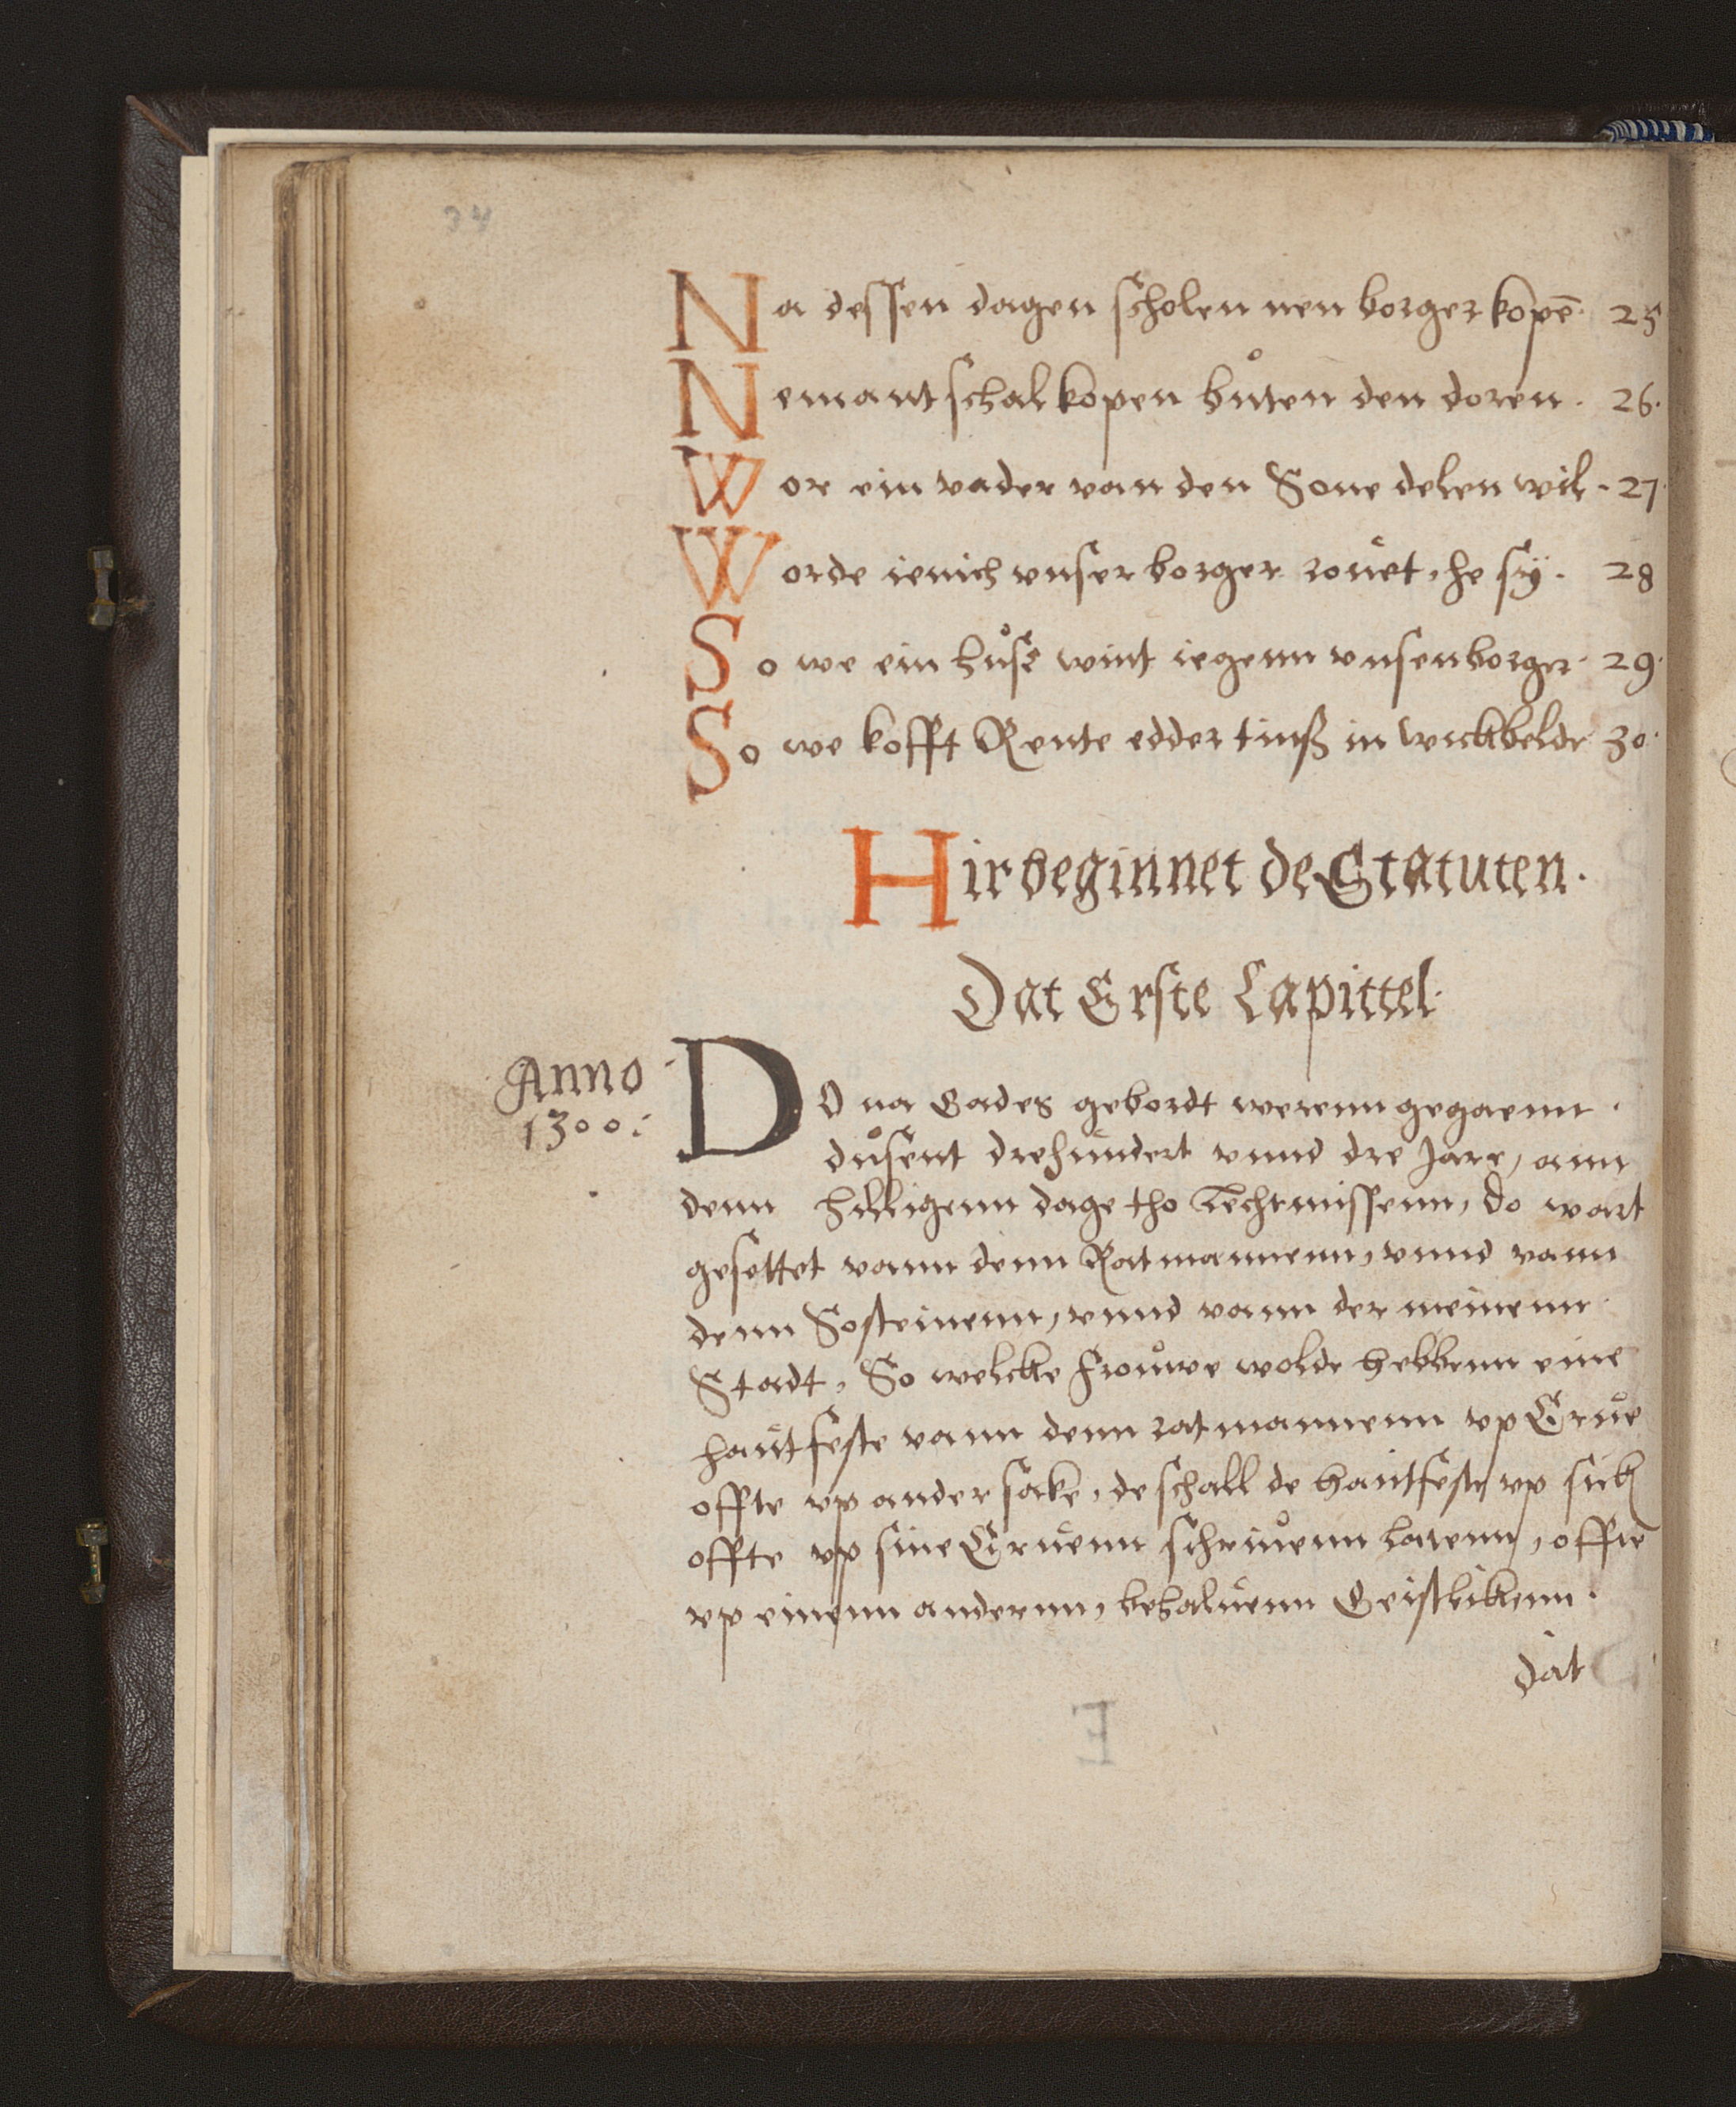 34
Na dessen dagen scholen nen borger kopē. 25
Nemant schal kopen bůten den doren. 26.
Wor ein vader van den Sone delen wil. 27.
Worde ienich vnser borger rouet, he sÿ. 28
So we ein hůse wint iegenn vnsen borger. 29.
So we kofft Rente edder tinß in wickbelde 30.
Hir beginnet de Statuten.
Dat Erste Capittel.
Anno
1300:
DO na Gades gebordt werenn gegaenn.
důsent drehundert vnnd dre Jare, ann
denn hilligenn dage tho Lechtmissenn, do wart
gesettet vann denn Ratmannenn, vnnd vann
denn Sosteinenn, vnnd vann der meinenn
Stadt, So welcke frouwe wolde hebbenn eine
hantfeste vann denn ratmannenn vp Erue
offte vp ander sake, de schall de hantfeste vp sick
offte vp sine Eruenn schriuenn latenn, offte
vp einenn anderenn, behaluenn Geistlikenn.
dat
E